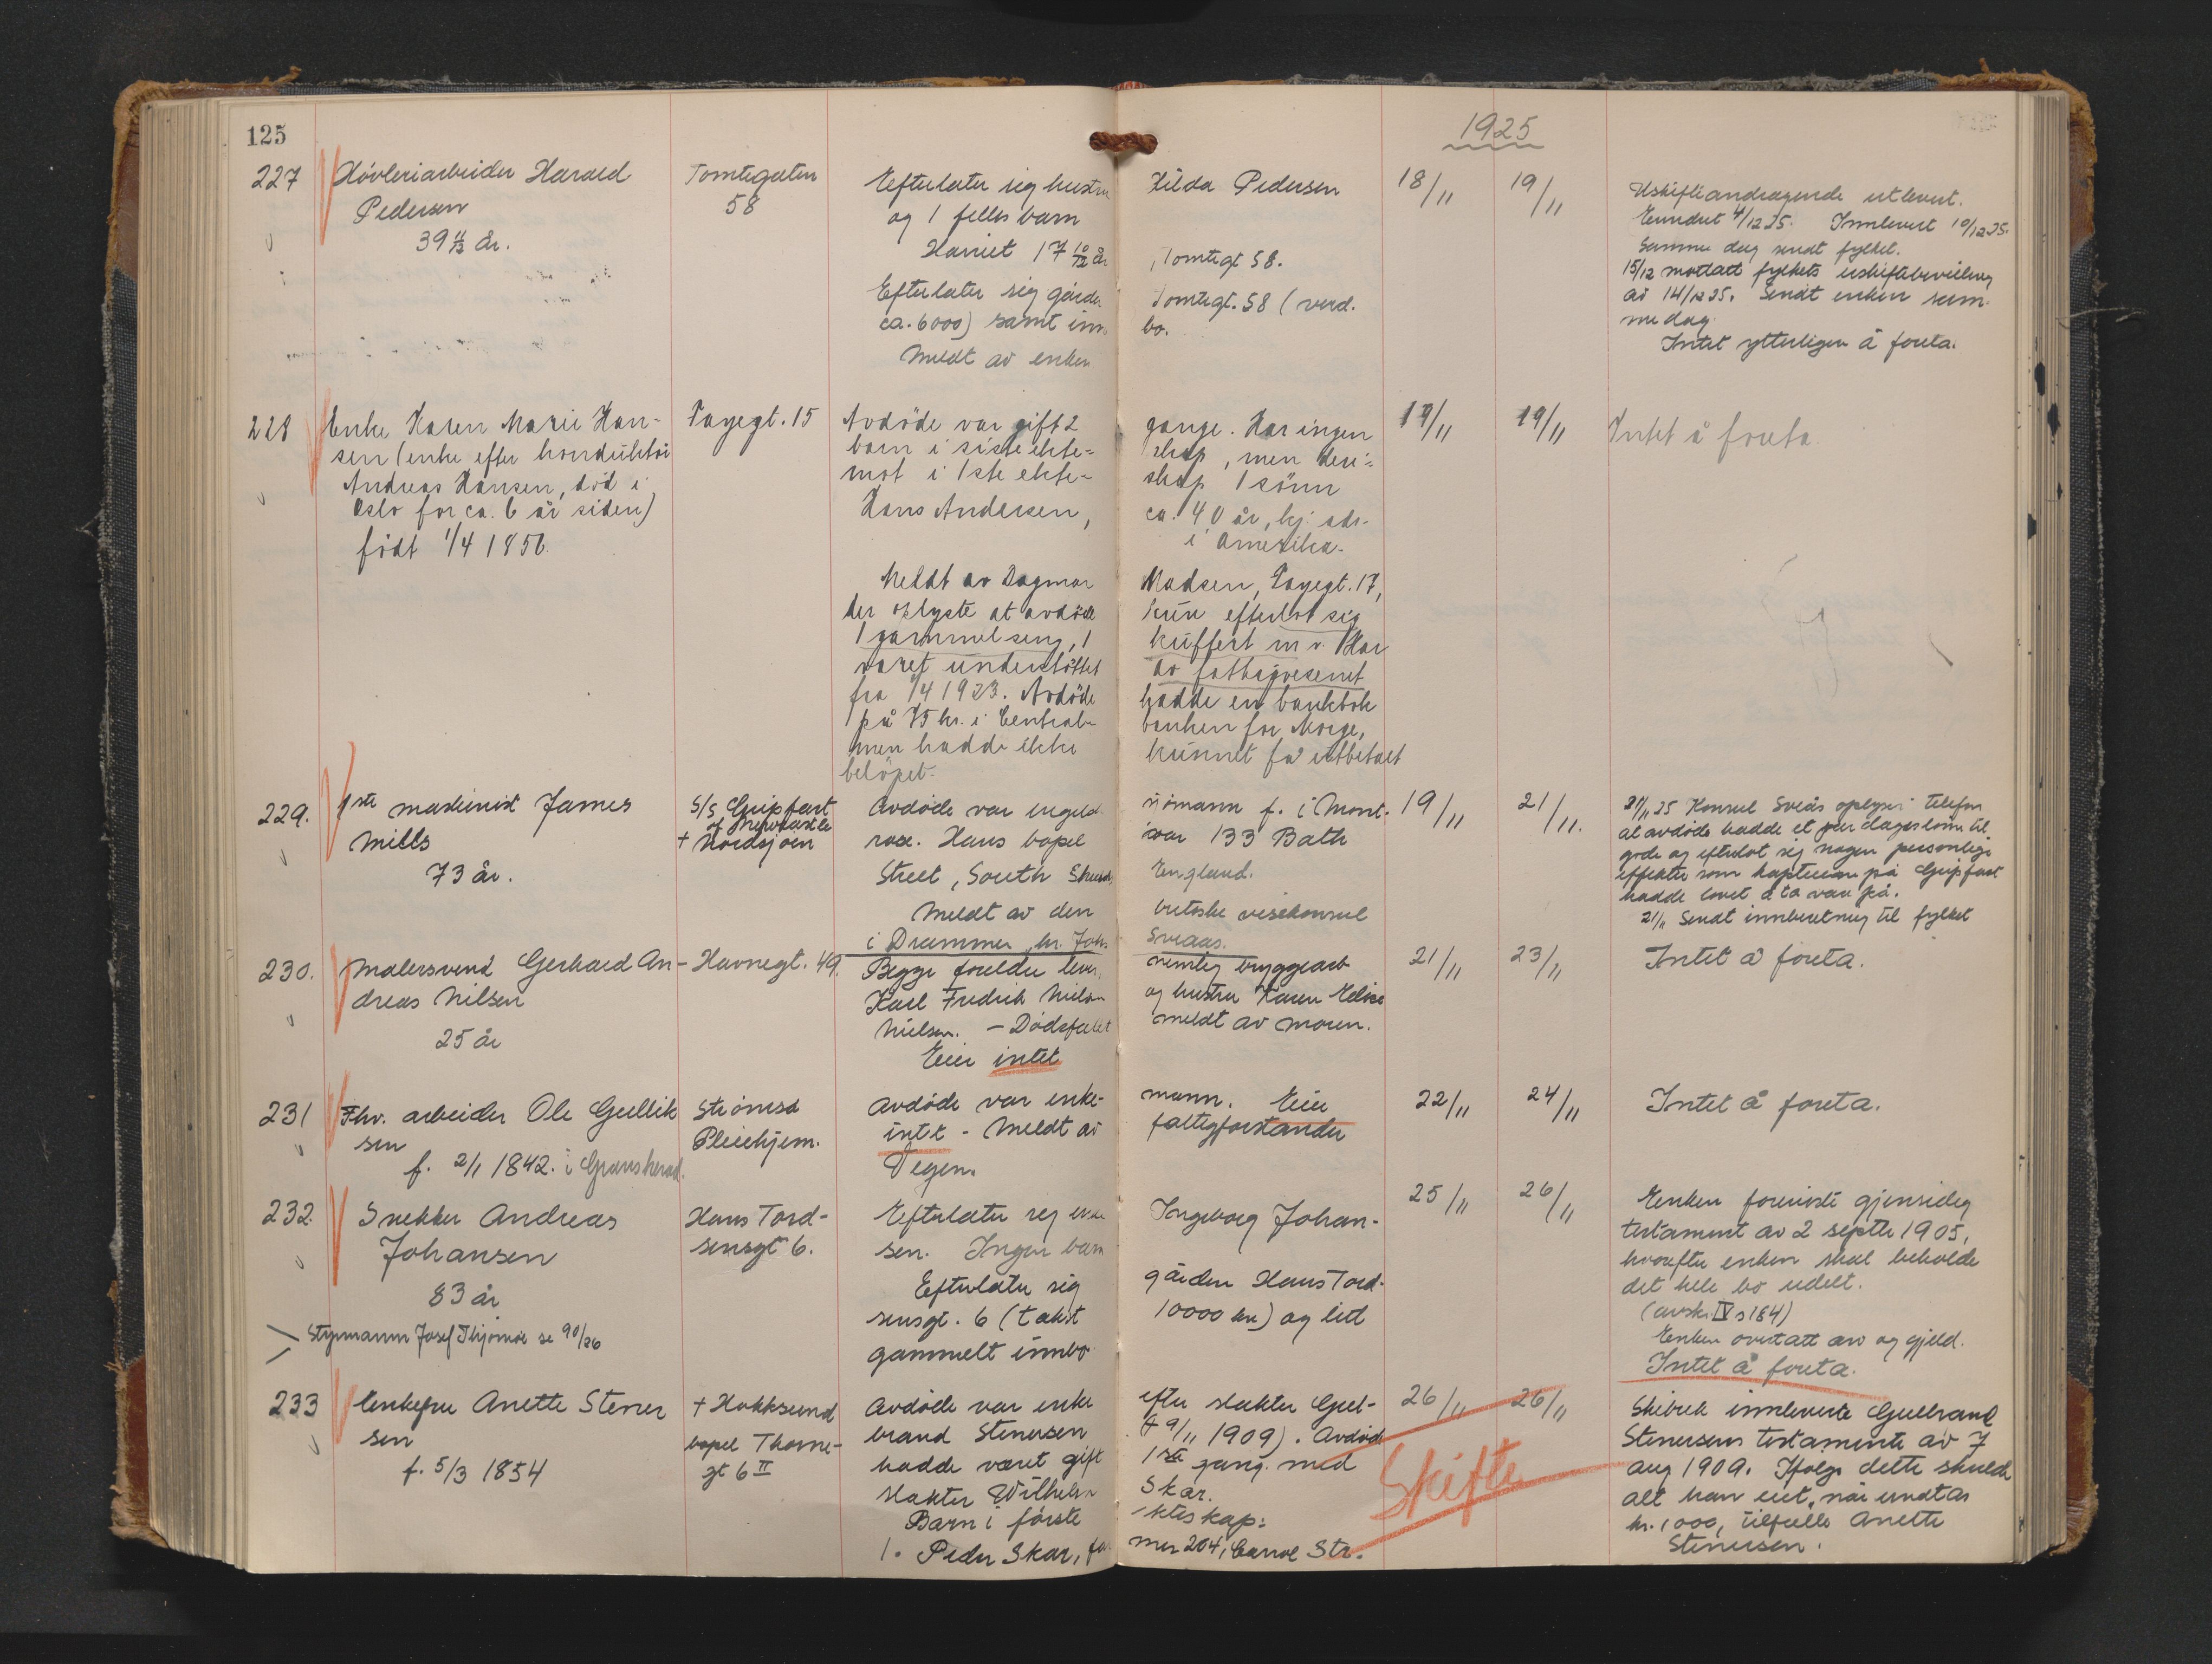 125
1925
227 Høvleriarbeider Harald
Pedersen
39 11/12 år.
Tomtegaten
58
Efterlater sig hustru Hilda Pedersen
og 1 felles barn
Harriet 17 10/12 år, Tomtegt 58.
Efterlater sig gården Tomtegt. 58 (verd.
ca. 6000) samt innbo.
Meldt av enken
18/11 19/11
Uskifteandragende utlevert.
Enndret 4/12 25. Innlevert 10/12 25.
Samme dag sendt fylket.
15/12 mottatt fylkets uskiftebevilling
av 14/12 25. Sendt enken sam-
me dag.
Intet ytterligere å foreta.
228 Enke Karen Marie Han-
sen (enke efter konduktör
Andreas Hansen, död i
Oslo for ca. 6 år siden)
födt 1/4 1856.
Fayegt. 15
Avdöde var gift 2 gange. Har ingen
barn i siste ekte= skap, men deri=
mot i 1ste ekte= skap 1 sönn
Hans Andersen, ca. 40 år, bj. adr.
i Amerika.
Meldt av Dagmar Madsen, Fayegt. 17,
der oplyste at avdöde kun efterlot sig
1 gammel seng, 1 kuffert m.v. Har
været understöttet av fattigvesenet
fra 1/4 1923. Avdöde hadde en bankbok
på 75 kr. i Central- banken for Norge,
men hadde ikke kunnet få utbetalt
belöpet.
19/11 19/11
Intet å foreta
229. 1ste maskinist James
Mills
73 år.
S/S Gripfast
of Newcastle
+ Nordsjøen
Avdøde var ingeld
rose. Hans bopel var 133 Bath
Street, South Shields, England.
Meldt av den britiske visekonsul
i Drammen, hr. Johs Sveaas.
19/11 21/11.
21/11 25 Konsul Sveås oplyser i telefon
at avdøde hadde et par dagers lønn til
gode og efterlot sig nogen personlige
effekter som kapteinen på Gripfast
hadde lovet å ta vare på.
21/11 Sendt innberetning til fylket
230. Malersvend Gerhard An-
dreas Nilsen
25 år
Havnegt. 49.
Begge foreldre lever, nemlig bryggearb
Karl Fredrik Nielsen og hustru Karen Elise
Nielsen. - Dødsfallet meldt av moren.
Eier intet
21/11 23/11
Intet å foreta.
231 Fhv. arbeider Ole Gullik
sen
f. 2/1 1842. i Gransherad.
Strømsø
Pleiehjem.
Avdøde var enke- mann. Eier
intet - Meldt av fattigforstander
Vegem
22/11 24/11
Intet å foreta.
232. Snekker Andreas
Johansen
83 år
Hans Tord-
sensgt 6.
Efterlater sig enke Ingeborg Johan-
sen. Ingen barn
Efterlater sig gården Hans Tord-
sensgt. 6 (takst 10000 kr) og litt
gammelt innbo
25/11 26/11
Enken foreviste gjensidig
testament av 2 septbr 1905,
hvorefter enken skal beholde
det hele bo udelt.
(avskr. IV s 184)
Enken overtatt arv og gjeld.
Intet å foreta.
Styrmann Josef Thjømøe se 90/26
233 Enkefru Anette Stener
sen
f. 5/3 1854
+ Hokksund
bopel Thorne-
gt 6 II
Avdøde var enke efter slakter Gul-
brand Stenersen + 9/11 1909). Avdøde
hadde været gift 1ste gang med
slakter Wilhelm Skar.
Barn i første ekteskap:
1. Peder Skar, mer 204, Carrol Str.
26/11 26/11
Skifte
Skibrek innleverte Gulbrand
Stenersens testamente av 7
aug 1909. Ifølge dette skulde
alt han eiet, når undtas
kr. 1000, tilfalle Anette
Stenersen.